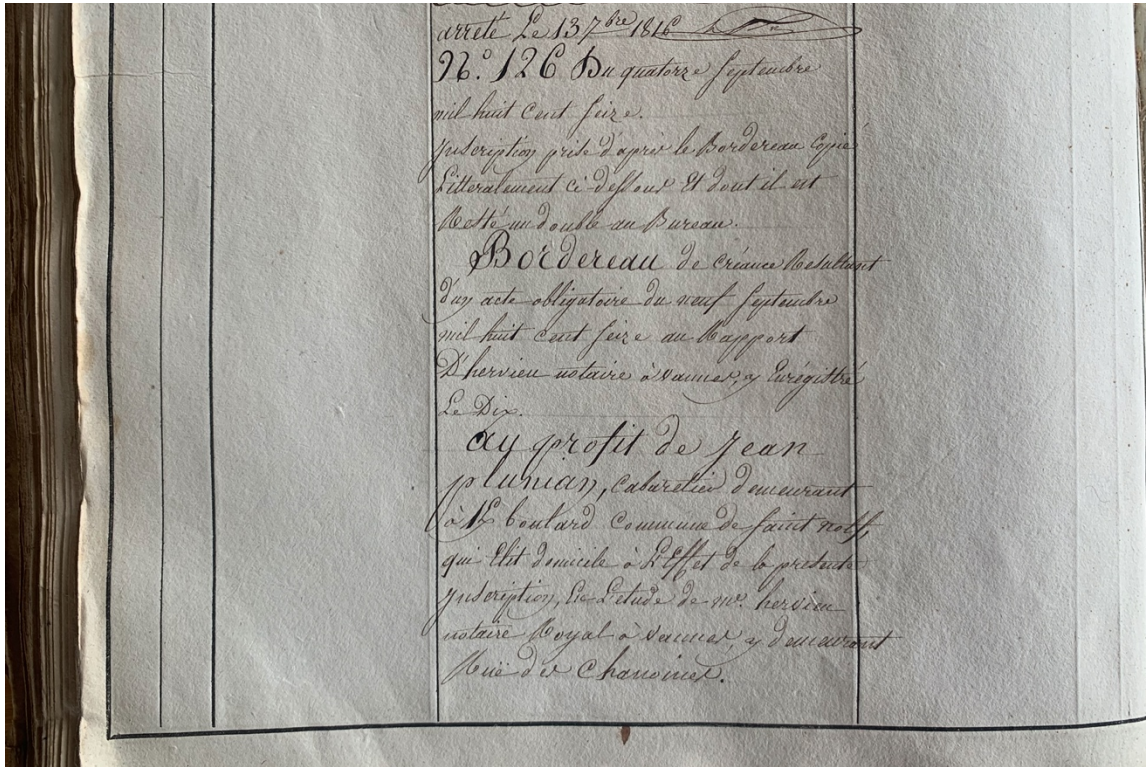 arreté Le 13 7bre 1816
N.° 126 Du quatorze Septembre
mil huit Cent Seize.
Inscription prise d'après le Bordereau Copié
Litteralement ci dessous Et dont il est
Resté un double au Bureau.
Bordereau de créance Resultant
d'un acte obligatoire du neuf Septembre
mil huit cent Seize au Rapport
D'hervieu notaire à vannes, y Enrégistré
Le Dix.
au profit de Jean
plunian, Cabaretier demeurant
à boulard Commune de Saint nolf,
qui Elit domicile à L'Effet de la presente
Inscription, En L'etude de me. hervieu
notaire Royal à vannes, y demeurant
Ruë des Chanoines.